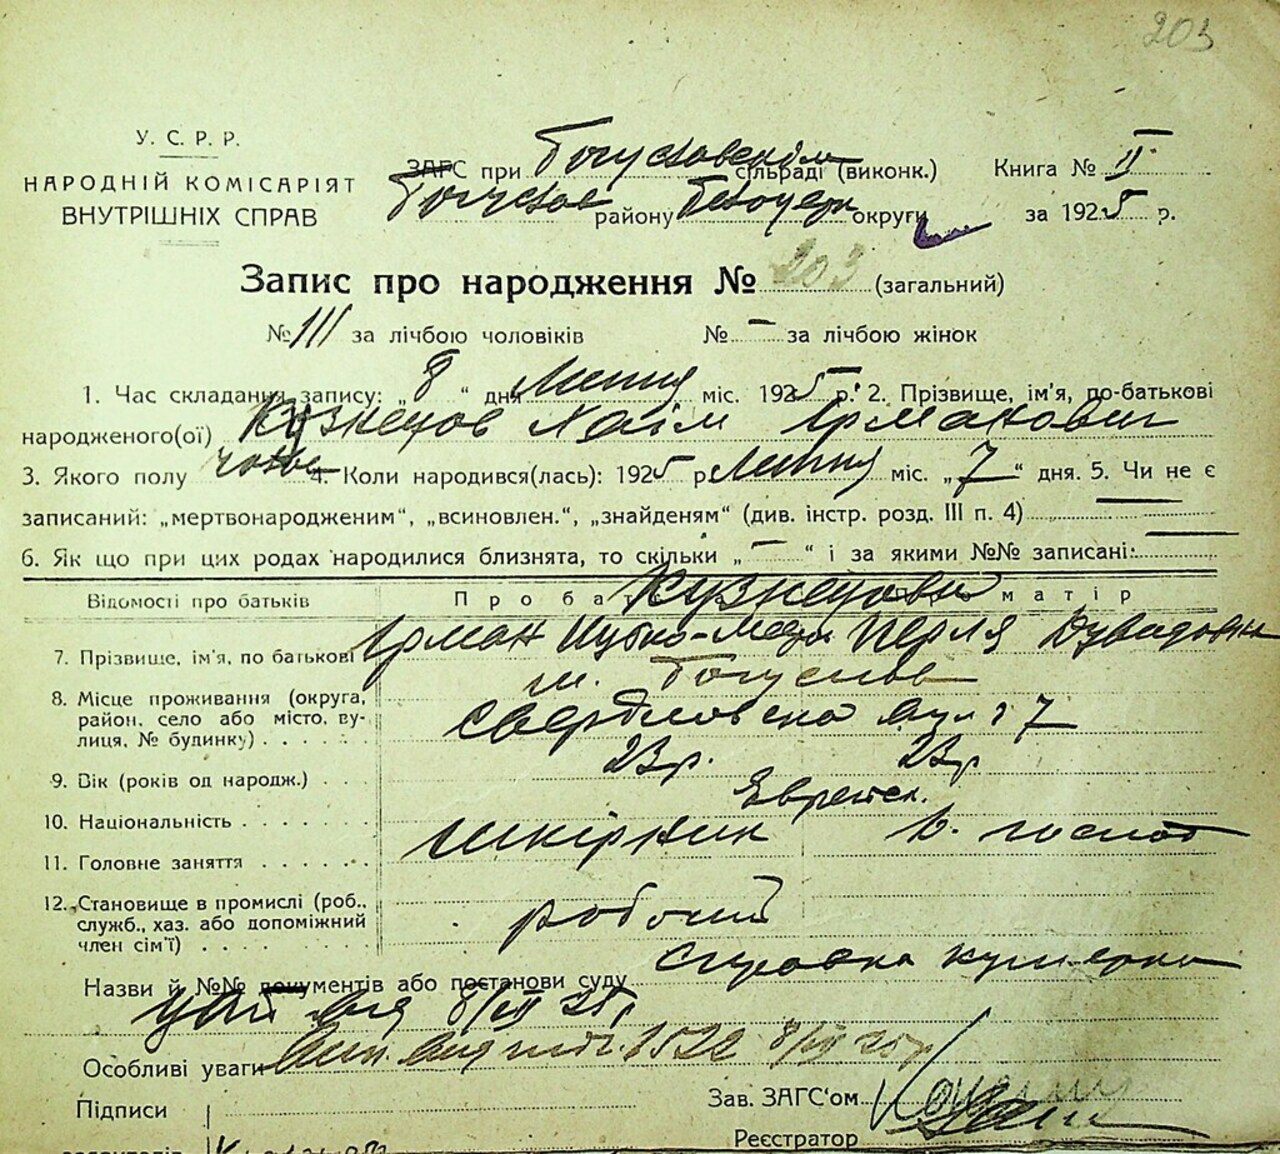 203
У. С. Р. Р.
НАРОДНІЙ КОМІСАРІЯТ
ВНУТРІШНІХ СПРАВ
ЗАГС при Богуславскім сільраді (виконк.)
Богуслав району Білоцерк округи
Книга № II
за 1925 р.
Запис про народження № 203 (загальний)
№ 111 за лічбою чоловіків № — за лічбою жінок
1. Час складання запису: „ 8 “ дня Липня міс. 1925 р. 2. Прізвище, ім'я, по-батькові
народженого(ої) Кузнецов Хаїм Єрмакович
3. Якого полу чолов 4. Коли народився(лась): 1925 р. Липня міс. „ 7 “ дня. 5. Чи не є
записаний: „мертвонародженим“, „всиновлен.“, „знайденям“ (див. інстр. розд. III п. 4) —
6. Як що при цих родах народилися близнята, то скільки „ — “ і за якими №№ записані: —
Відомості про батьків Про матір
Кузнецови
7. Прізвище, ім'я, по батькові Перля
8. Місце проживання (округа, район, село або місто, вулиця, № будинку) м. Богуслав
Свердловська вул 17
9. Вік (років од народж.) 23р. 23р
10. Національність Еврейск.
11. Головне заняття Шкірник
12. Становище в промислі (роб., служб., хаз. або допоміжний член сім'ї) робочий
Назви й №№ документів або постанови суду Справка
8/VII 25р
Особліві уваги 1522 8/VII 25р
Підписи
Зав. ЗАГС'ом
Реєстратор